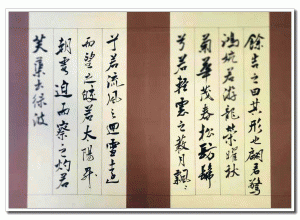 餘告之曰其形也翩若驚
鴻婉若游龍榮耀秋
菊華茂春松髣髴
兮若輕雲之蔽月飄颻
兮若流風之迴雪遠
而望之皎若太陽升
朝霞迫而察之灼若
芙蕖出淥波